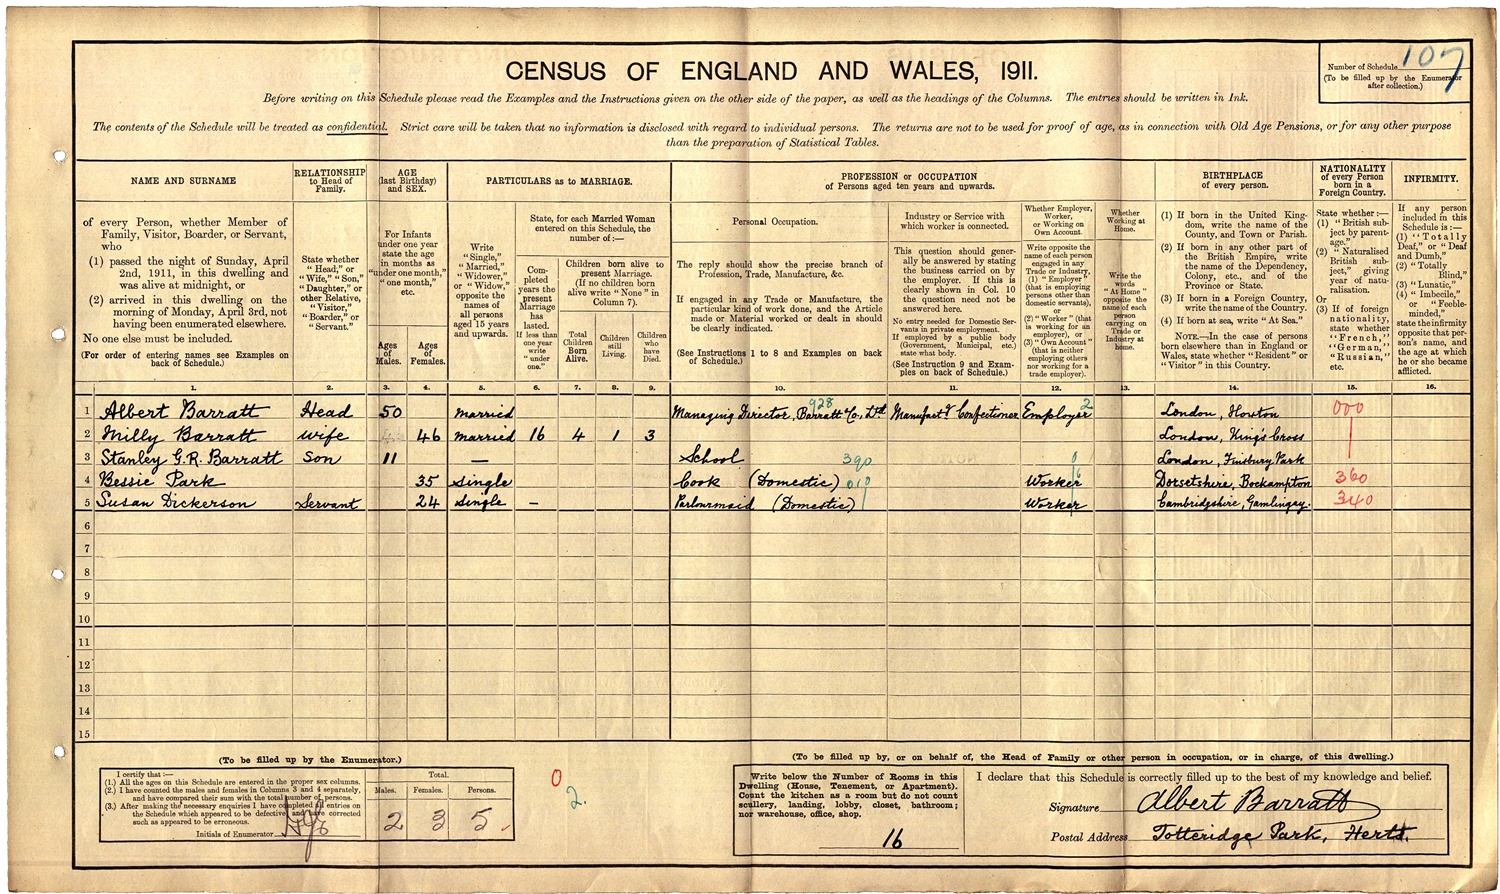 CENSUS OF ENGLAND AND WALES, 1911.
Number of Schedule 107
(To be filled up by the Enumerator
after collection.)
Before writing on this Schedule please read the Examples and the Instructions given on the other side of the paper, as well as the headings of the Columns. The entries should be written in Ink.
The contents of the Schedule will be treated as confidential. Strict care will be taken that no information is disclosed with regard to individual persons. The returns are not to be used for proof of age, as in connection with Old Age Pensions, or for any other purpose
than the preparation of Statistical Tables.
NAME AND SURNAME
of every Person, whether Member of
Family, Visitor, Boarder, or Servant,
who
(1) passed the night of Sunday, April
2nd, 1911, in this dwelling and
was alive at midnight, or
(2) arrived in this dwelling on the
morning of Monday, April 3rd, not
having been enumerated elsewhere.
No one else must be included.
(For order of entering names see Examples on
back of Schedule.)
RELATIONSHIP
to Head of
Family.
State whether
"Head," or
"Wife," "Son,"
"Daughter," or
other Relative,
"Visitor,"
"Boarder," or
"Servant."
AGE
(last Birthday)
and SEX.
For Infants
under one year
state the age
in months as
"under one month,"
"one month,"
etc.
Ages
of
Males.
Ages
of
Females.
PARTICULARS as to MARRIAGE.
Write
"Single,"
"Married,"
"Widower,"
or "Widow,"
opposite the
names of
all persons
aged 15 years
and upwards.
State, for each Married Woman
entered on this Schedule, the
number of:—
Completed
years the
present
Marriage
has
lasted.
If less than
one year
write
"under
one."
Children born alive to
present Marriage.
(If no children born
alive write "None" in
Column 7).
Total
Children
Born
Alive.
Children
still
Living.
Children
who
have
Died.
PROFESSION or OCCUPATION
of Persons aged ten years and upwards.
Personal Occupation.
The reply should show the precise branch of
Profession, Trade, Manufacture, &c.
If engaged in any Trade or Manufacture, the
particular kind of work done, and the Article
made or Material worked or dealt in should
be clearly indicated.
(See Instructions 1 to 8 and Examples on back
of Schedule.)
Industry or Service with
which worker is connected.
This question should gener-
ally be answered by stating
the business carried on by
the employer. If this is
clearly shown in Col. 10
the question need not be
answered here.
No entry needed for Domestic Ser-
vants in private employment.
If employed by a public body
(Government, Municipal, etc.)
state what body.
(See Instruction 9 and Exam-
ples on back of Schedule.)
Whether Employer,
Worker,
or Working on
Own Account.
Write opposite the
name of each person
engaged in any
Trade or Industry,
(1) "Employer"
(that is employing
persons other than
domestic servants),
or
(2) "Worker" (that
is working for an
employer), or
(3) "Own Account"
(that is neither
employing others
nor working for a
trade employer).
Whether
Working at
Home.
Write the
words
"At Home"
opposite the
name of each
person
carrying on
Trade or
Industry at
home.
BIRTHPLACE
of every person.
(1) If born in the United King-
dom, write the name of the
County, and Town or Parish.
(2) If born in any other part of
the British Empire, write
the name of the Dependency,
Colony, etc., and of the
Province or State.
(3) If born in a Foreign Country,
write the name of the Country.
(4) If born at sea, write "At Sea."
NOTE.—In the case of persons
born elsewhere than in England or
Wales, state whether "Resident" or
"Visitor" in this Country.
NATIONALITY
of every Person
born in a
Foreign Country.
State whether:—
(1) "British sub-
ject by parent-
age."
(2) "Naturalised
British sub-
ject," giving
year of natu-
ralisation.
Or
(3) If of foreign
nationality,
state whether
"French,"
"German,"
"Russian,"
etc.
INFIRMITY.
If any person
included in this
Schedule is:—
(1) "Totally
Deaf," or "Deaf
and Dumb,"
(2) "Totally
Blind,"
(3) "Lunatic,"
(4) "Imbecile,"
or "Feeble-
minded,"
state the infirmity
opposite that per-
son's name, and
the age at which
he or she became
afflicted.
1. 2. 3. 4. 5. 6. 7. 8. 9. 10. 11. 12. 13. 14. 15. 16.
1 Albert Barratt Head 50 Married Managing Director, Barratt & Co, Ltd 928 Manufact'g Confectioner Employer 2 London, Hoxton 000
2 Milly Barratt Wife 46 Married 16 4 1 3 London, King's Cross
3 Stanley G.R. Barratt Son 11 — School 390 0 London, Finsbury Park
4 Bessie Park 35 Single Cook (Domestic) 010 Worker Dorsetshire, Bockampton 360
5 Susan Dickerson Servant 24 Single — Parlourmaid (Domestic) Worker Cambridgshire, Gamlingay. 340
6
7
8
9
10
11
12
13
14
15
(To be filled up by the Enumerator.)
I certify that:—
(1.) All the ages on this Schedule are entered in the proper sex columns.
(2.) I have counted the males and females in Columns 3 and 4 separately,
and have compared their sum with the total number of persons.
(3.) After making the necessary enquiries I have completed all entries on
the Schedule which appeared to be defective, and have corrected
such as appeared to be erroneous.
Initials of Enumerator
Total.
Males. Females. Persons.
2 3 5
0
2.
(To be filled up by, or on behalf of, the Head of Family or other person in occupation, or in charge, of this dwelling.)
Write below the Number of Rooms in this
Dwelling (House, Tenement, or Apartment).
Count the kitchen as a room but do not count
scullery, landing, lobby, closet, bathroom;
nor warehouse, office, shop.
16
I declare that this Schedule is correctly filled up to the best of my knowledge and belief.
Signature Albert Barratt
Postal Address Totteridge Park, Herts.